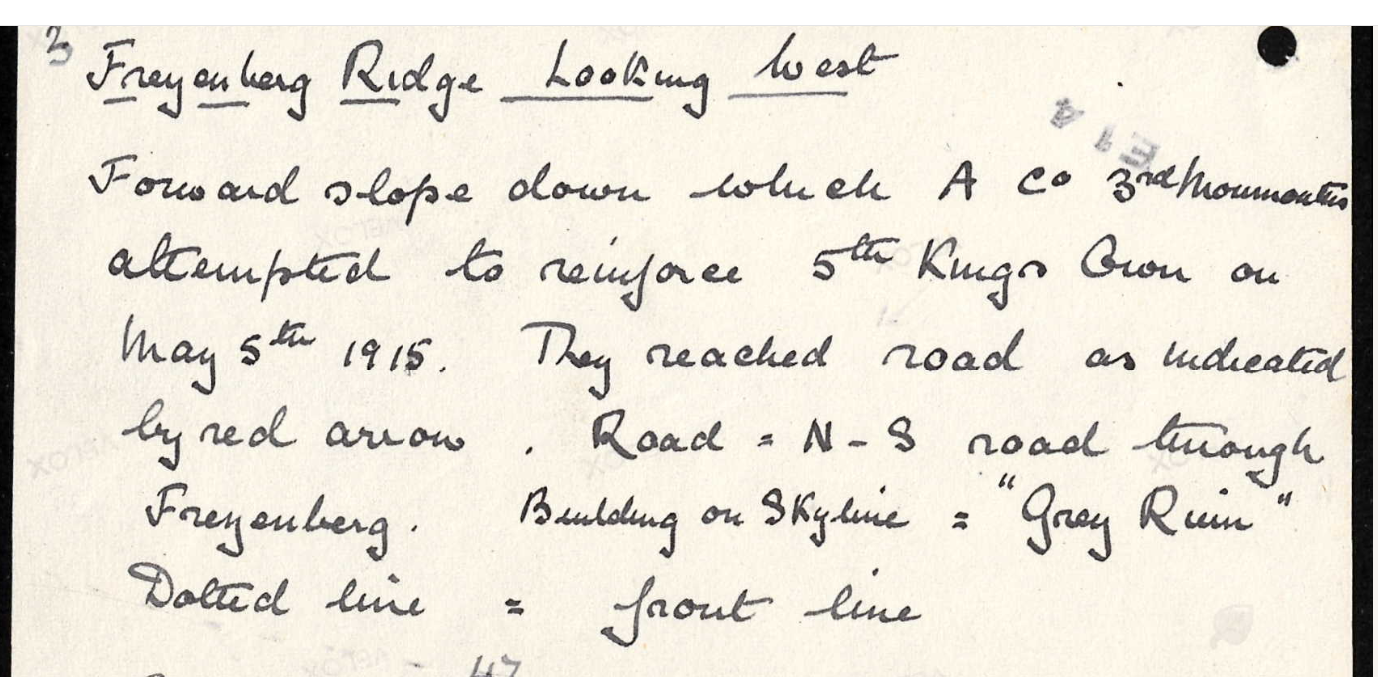 3 Freyenberg Ridge Looking West
E1 4
Forward slope down which A Co 3rd Monmouths
attempted to reinforce 5th Kings Own on
May 5th 1915. They reached road as indicated
by red arrow. Road = N-S road through
Frezenberg. Building on Skyline = "Grey Ruin"
Dotted line = front line
47